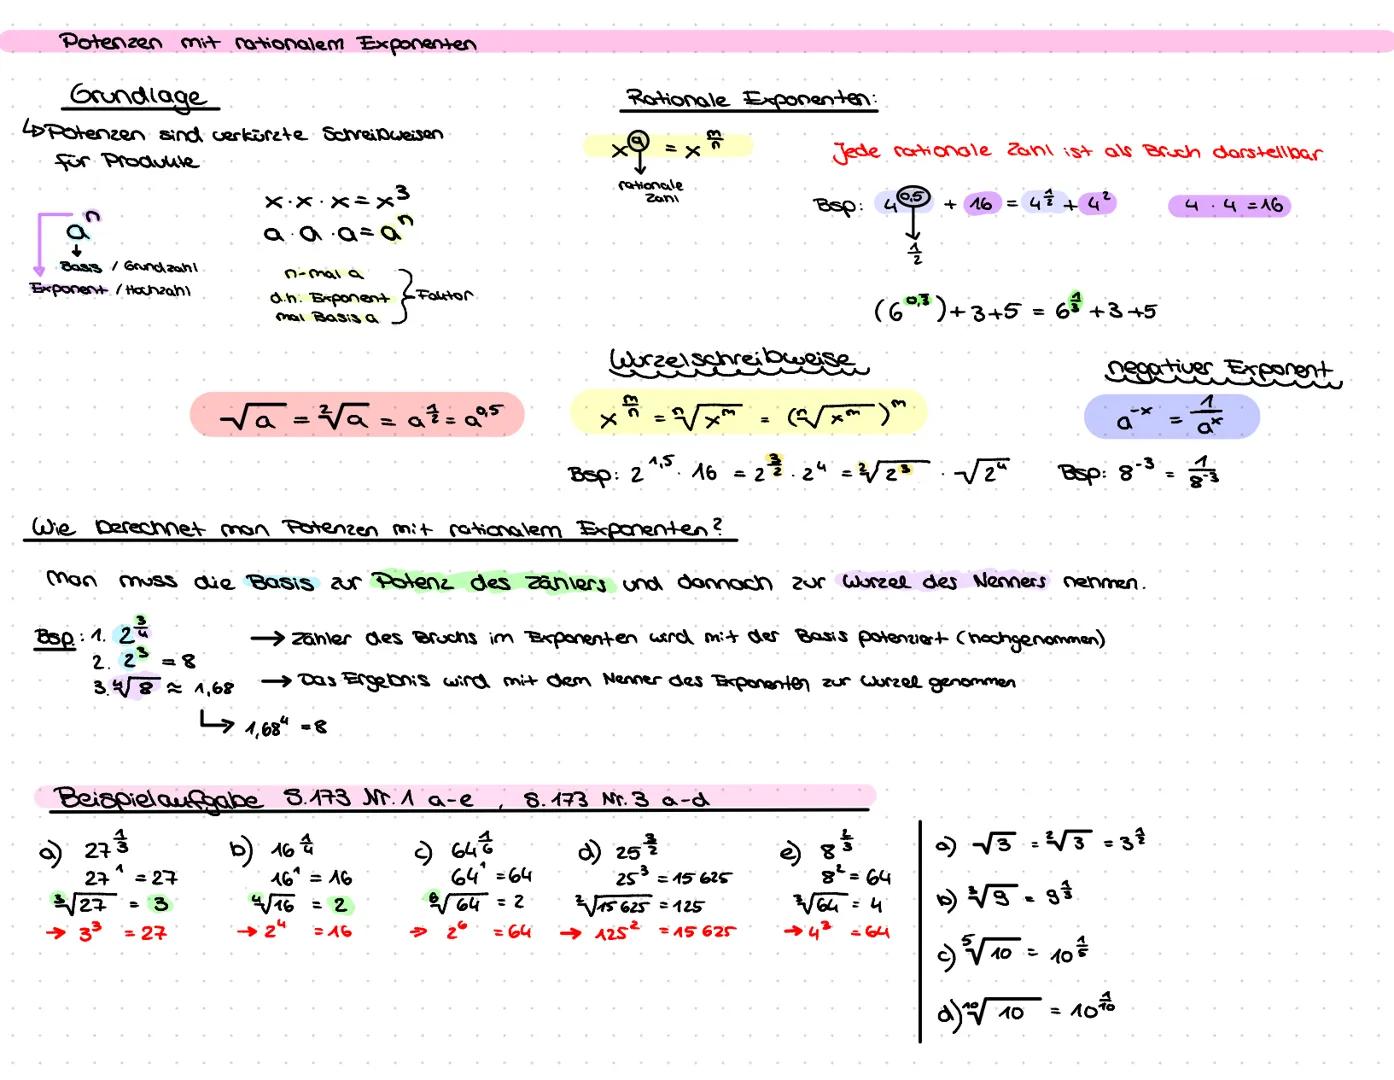 Potenzen mit rationalem Exponenten
Grundlage
↳ Potenzen sind verkürzte Schreibweisen
für Produkte
x · x · x = x³
a · a · a = aⁿ
aⁿ
Basis / Grundzahl
Exponent / Hochzahl
n-mal a
d.h. Exponent
mal Basis a
Faktor
√a = ²√a = a^(1/2) = a^0,5
Rationale Exponenten:
x^q = x^(m/n)
rationale
Zahl
Jede rationale Zahl ist als Bruch darstellbar
Bsp: 4^0,5 + 16 = 4^(1/2) + 4² 4 · 4 = 16
1/2
(6^0,3̅) + 3 + 5 = 6^(1/3) + 3 + 5
Wurzelschreibweise
x^(m/n) = ⁿ√x^m = (ⁿ√x^m)^m
Bsp: 2^1,5 · 16 = 2^(3/2) · 2⁴ = ²√2³ · √2⁴
negativer Exponent
a^-x = 1/a^x
Bsp: 8^-3 = 1/8^-3
Wie berechnet man Potenzen mit rationalem Exponenten?
Man muss die Basis zur Potenz des Zählers und dannach zur Wurzel des Nenners nehmen.
Bsp: 1. 2^(3/4) → Zähler des Bruchs im Exponenten wird mit der Basis potenziert (hochgenommen)
2. 2³ = 8
3. ⁴√8 ≈ 1,68 → Das Ergebnis wird mit dem Nenner des Exponenten zur Wurzel genommen
↳ 1,68⁴ = 8
Beispielaufgabe S.173 Nr. 1 a-e , S. 173 Nr. 3 a-d
a) 27^(1/3)
27¹ = 27
³√27 = 3
→ 3³ = 27
b) 16^(1/4)
16¹ = 16
⁴√16 = 2
→ 2⁴ = 16
c) 64^(1/6)
64¹ = 64
⁶√64 = 2
→ 2⁶ = 64
d) 25^(3/2)
25³ = 15 625
²√15 625 = 125
→ 125² = 15 625
e) 8^(2/3)
8² = 64
³√64 = 4
→ 4³ = 64
a) √3 = ²√3 = 3^(1/2)
b) ³√9 = 9^(1/3)
c) ⁵√10 = 10^(1/5)
d) ¹⁰√10 = 10^(1/10)